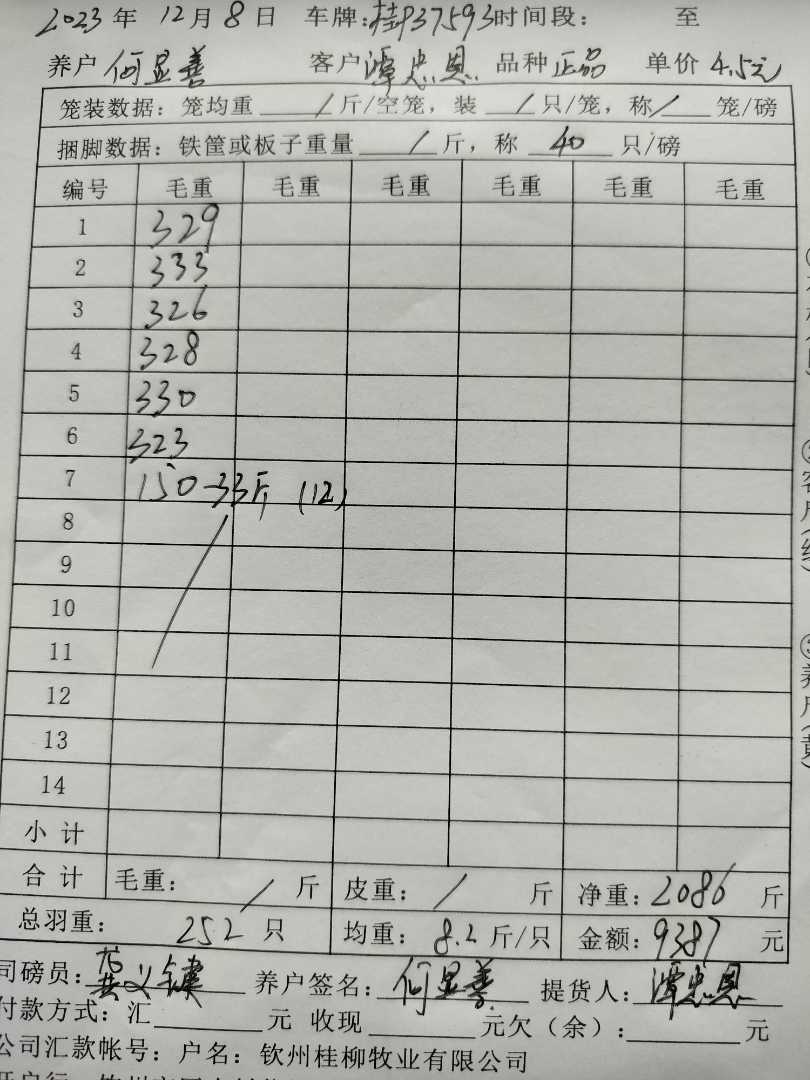 2023 年 12 月 8 日 车牌:桂P37593 时间段: 至
养户 何显善 客户 潭忠恩 品种 正品 单价 4.5元
笼装数据: 笼均重 / 斤/空笼, 装 / 只/笼, 称 / 笼/磅
捆脚数据: 铁筐或板子重量 / 斤, 称 40 只/磅
编号 毛重 毛重 毛重 毛重 毛重 毛重
1 329
2 333
3 326
4 328
5 330
6 323
7 150-33斤 (12)
8
9
10
11
12
13
14
小 计
合 计 毛重: / 斤 皮重: / 斤 净重: 2086 斤
总羽重: 252 只 均重: 8.2 斤/只 金额: 9387 元
司磅员: 义 养户签名: 何显善 提货人: 潭忠恩
付款方式: 汇 元 收现 元欠(余): 元
公司汇款帐号: 户名: 钦州桂柳牧业有限公司